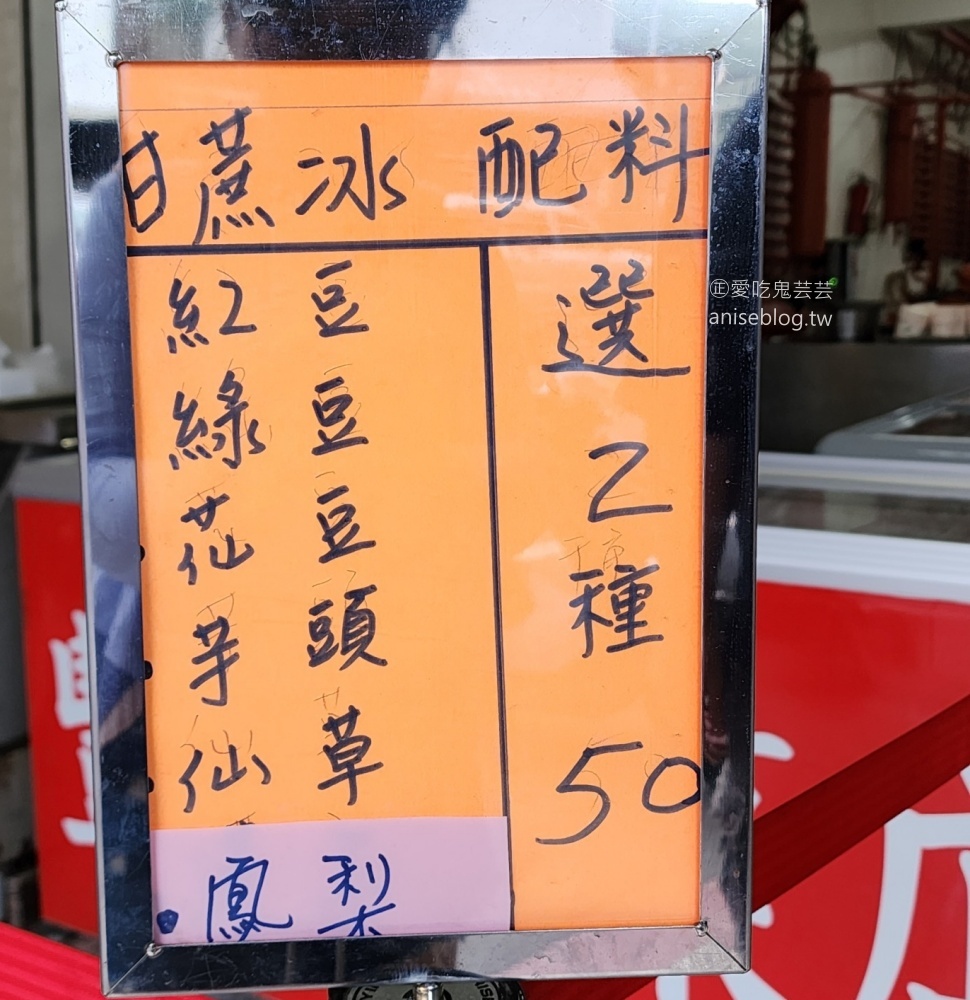 甘蔗冰 配料
紅豆
綠豆
花豆
芋頭
仙草
鳳梨
選
2
種
50
㊣愛吃鬼芸芸
aniseblog.tw